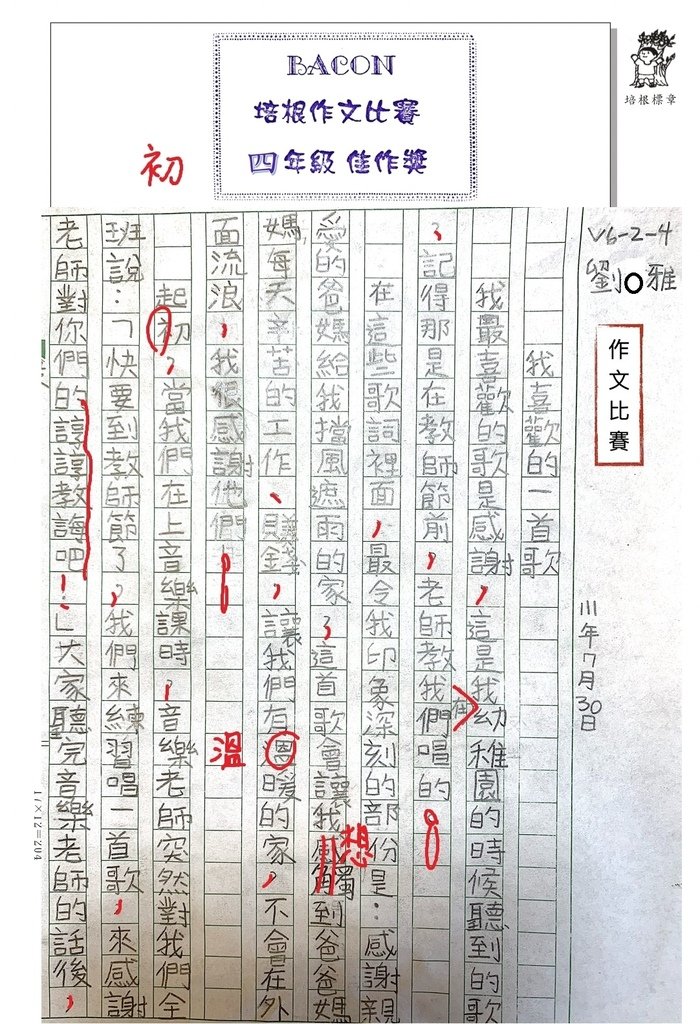 BACON
培根作文比賽
四年級 佳作獎
培根標章
初
V6-2-4
劉O雅
作文比賽
111年7月30日
我喜歡的一首歌
我最喜歡的歌是感謝,這是我在幼稚園的時候聽到的歌
,記得那是在教師節前,老師教我們唱的。
在這些歌詞裡面,最令我印象深刻的部份是:感謝親
愛的爸媽給我擋風遮雨的家,這首歌會讓我感觸到爸爸媽
想
媽,每天辛苦的工作、賺錢,讓我們有溫暖的家,不會在外
溫
面流浪,我很感謝他們!
起初,當我們在上音樂課時,音樂老師突然對我們全
班說:「快要到教師節了,我們來練習唱一首歌,來感謝
老師對你們的諄諄教誨吧!」大家聽完音樂老師的話後,
17×12=204